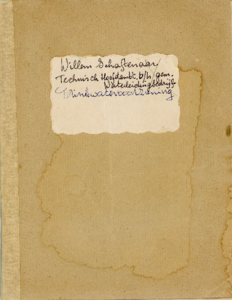 Willem Schaftenaar
Technisch Hoofdambt. b/h. gem.
Waterleidingbedrijf
Drinkwatervoorziening